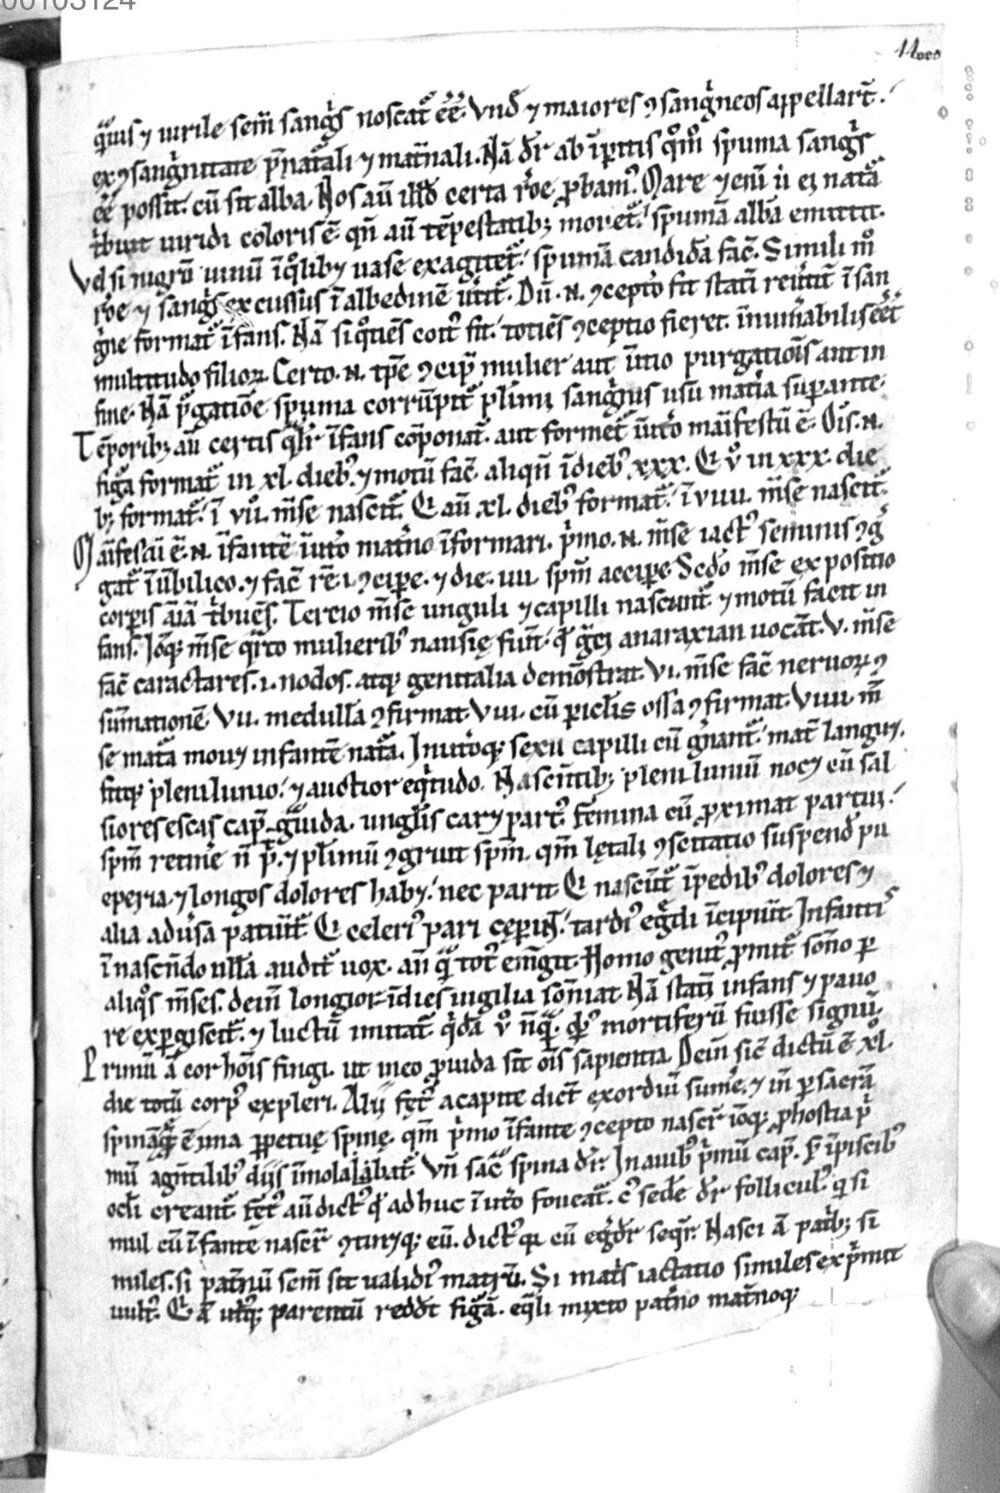 00103124
11
q̃uis ⁊ uirile sem̃ sangͥs noscat᷑ ẽẽ. Vnd̃ ⁊ maiores ꝯsangͥneos appellar̃t.
ex ꝯsangͥnitate pr̃natali ⁊ mat̃nali. Nã dr̃ ab ip̃itis qͦmͦ spuma sangͥs
ẽẽ possit. cũ sit alba. Nos aũ illđ certa rõe ꝓbamꝰ. Mare ⁊ eni᷑ natã
uiridi coloris ẽ. qñ aũ tẽpestatibꝫ mouet᷑. spumã albã emittit.
Vel si nigrũ uinũ ĩ qͦlibꝫ uase exagitet᷑. spumã candidã fac̃. Simili mͦ
rõe ⁊ sangͥs excussus ĩ albedinẽ ũtit᷑. Dũ .n. ꝯcepto fit statĩ reũtit᷑ ĩ san
gͥne format᷑ ĩfans. Nã si qͦtiẽs coitꝰ fit. totiẽs ꝯceptio fieret. ĩnumãbilis eẽt
multitudo filioꝝ. Certo .n. tp̃e ꝯcip̃ mulier aut ĩitio purgatiõis aut in
fine. Nã p̃gatiõe spuma corrũpit᷑ plimũ sangͥnis usũ mat̃ia supante.
Tẽporibꝫ aũ certis qͣlit᷑ ĩfans cõponat᷑. aut formet᷑ ĩ ut̃o manifestũ ẽ. Oĩs .n.
figͣa format᷑ in xl. diebꝰ. ⁊ motũ fac̃ aliqñ ĩ diebꝰ xxx. Et ṽ in xxx die
bꝫ format᷑. ĩ vii. m̃se nascit᷑. Et aũ xl. diebꝰ format᷑. ĩ viiii. m̃se nascit᷑.
Maĩfestũ ẽ .n. ĩfantẽ ĩ ut̃o mat̃no ĩformari. pͥmo .n. m̃se iactꝰ seminis ꝯgͥ
gat᷑ ĩ ũbilico. ⁊ fac̃ rẽ .i. ꝯcipe. ⁊ die .iiii. spm̃ accipe. Scd̃o m̃se expositio
corp̃is aĩã tͥbuẽs. Tercio m̃se unguli ⁊ capilli nascunt᷑ ⁊ motũ facit in
fans. Ioqꝫ m̃se qͣrto mulieribꝰ nausię fiũt. qd̃ gͣeci anaraxian uocãt. V. m̃se
fac̃ caractares .i. nodos. atqꝫ genitalia demõstrat. VI. m̃se fac̃ neruoꝝ ꝯ
sumationẽ. VII. medullã ꝯfirmat. VIII. cũ piclis ossa ꝯfirmat. VIIII m̃
se matã mouꝫ infantẽ natã. In utroqꝫ sexu capilli cũ gͥnant᷑. mat̃ languꝫ.
fitqꝫ plenilunio. ⁊ auctior egͥtudo. Nascẽtibꝫ plenilunĩũ nocꝫ cũ sal
siores escas cap̃ gͣuida. unglis carꝫ partꝰ. femina cũ ꝓximat partui.
spm̃ retinẽ ñ p̃. ⁊ plimũ ꝯgruit spm̃. qm̃ lętalꝫ ꝯscitatio suspend̃ pu
eperia. ⁊ longos dolores habꝫ. nec parit. Et nascũt᷑ ĩpedibꝰ dolores ⁊
alia adũsa patiũt᷑. Et celeriꝰ pari cęperĩt. tardiꝰ egͥdi ĩcipiũt. Infantiꝰ
ĩ nascẽdo nllã audit᷑ uox. añ qͣ totꝰ em̃git. Homo genitꝰ p̃mit᷑ sõno p
aliqͦs m̃ses. dein longior ĩ dies uigilia sõniat. Nã statĩ infans ⁊ pauo
re expgiscit᷑. ⁊ luctũ imitat᷑ qͥdã ṽ ñqͣ. qd̃ mortiferũ fuisse signũ.
Primũ ã cor hõis fingi. ut in eo ꝓuida sit oĩs sapientia. Dein sic̃ dictũ ẽ xl.
die totũ corpꝰ expleri. Alii fetꝰ a capite dict̃ exordiũ sumẽ. ⁊ in p sacrã
spinã qͣ ẽ una ppetuę spinę. qm̃ pͥmo ĩfante ꝯcepto nascit᷑ ioqꝫ ꝓ hostia pͥ
mũ agẽtilibꝰ diis ĩmolabat᷑. Vñ sac̃ spina dr̃. In auibꝰ pͥmũ cap̃. ĩ piscibꝰ
oc̃li creant᷑. fetꝰ aũ dictꝰ qd̃ adhuc ĩ ut̃o foueat᷑. cꝰ sede dr̃ folliculꝰ. qͥ si
mul cũ ĩfante nascit᷑ ꝯtinꝫqꝫ eũ. dictꝰ qͥ cũ egͥdit᷑ seqt᷑. Nasci ã patͥbꝫ si
miles. si pat̃nũ sem̃ sit ualidiꝰ matrũ. Si matͥs iactatio similes expͥmit
uult᷑. Et ã utͥqꝫ parentũ redd̃t figͣã. eqͣli mixto pat̃no mat̃noqꝫ